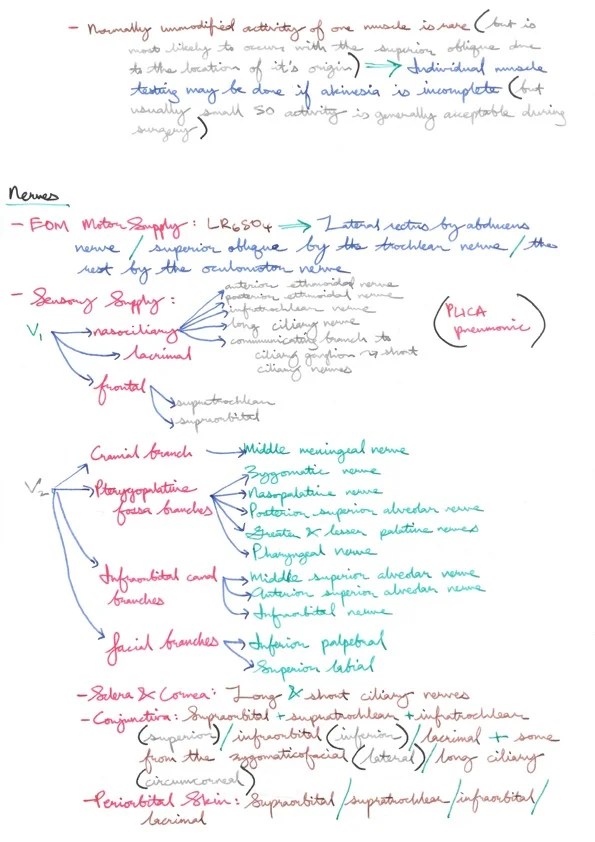 - Normally unmodified activity of one muscle is rare (but is
most likely to occur with the superior oblique due
to the location of it's origin) ⟹ Individual muscle
testing may be done if akinesia is incomplete (but
usually small SO activity is generally acceptable during
surgery)
Nerves
- EOM Motor Supply: LR6SO4 ⟹ Lateral rectus by abducens
nerve / superior oblique by the trochlear nerve / the
rest by the oculomotor nerve
- Sensory Supply:
V1
nasociliary
anterior ethmoidal nerve
posterior ethmoidal nerve
infratrochlear nerve
long ciliary nerve
communicating branch to
ciliary ganglion → short
ciliary nerves
(PLICA
pneumonic)
lacrimal
frontal
supratrochlear
supraorbital
V2
Cranial branch → Middle meningeal nerve
Pterygopalatine
fossa branches
Zygomatic nerve
Nasopalatine nerve
Posterior superior alveolar nerve
Greater & lesser palatine nerves
Pharyngeal nerve
Infraorbital canal
branches
Middle superior alveolar nerve
Anterior superior alveolar nerve
Infraorbital nerve
facial branches
Inferior palpebral
Superior labial
- Sclera & Cornea: Long & short ciliary nerves
- Conjunctiva: Supraorbital + supratrochlear + infratrochlear
(superior) / infraorbital (inferior) / lacrimal + some
from the zygomaticofacial (lateral) / long ciliary
(circumcorneal)
- Periorbital Skin: Supraorbital / supratrochlear / infraorbital /
lacrimal